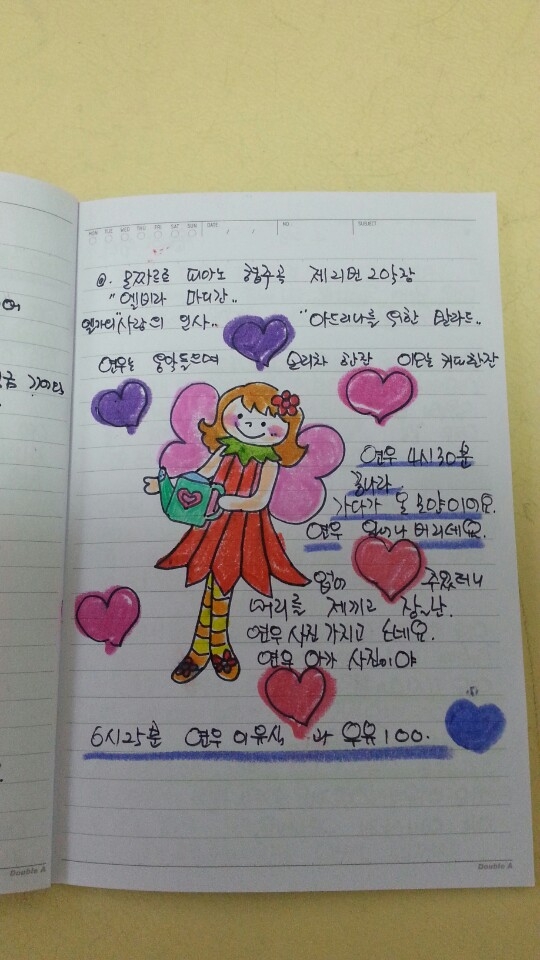 MON TUE WED THU FRI SAT SUN DATE / / NO. SUBJECT
@. 모짜르트 피아노 협주곡 제21번 2악장
"엘비라 마디간"
엘가의 "사랑의 인사" "아드리나를 위한 발라드"
연우는 음악들으며 보리차 한잔 이모는 커피한잔
연우 4시30분
꿈나라
가다가 올 모양이에요.
연우 일어나 버리네요.
업어 주었더니
머리를 제끼고 장난.
연우 사진 가지고 노네요.
연우 아가 사진이야
6시25분 연우 이유식 과 우유 100.
Double A
Double A